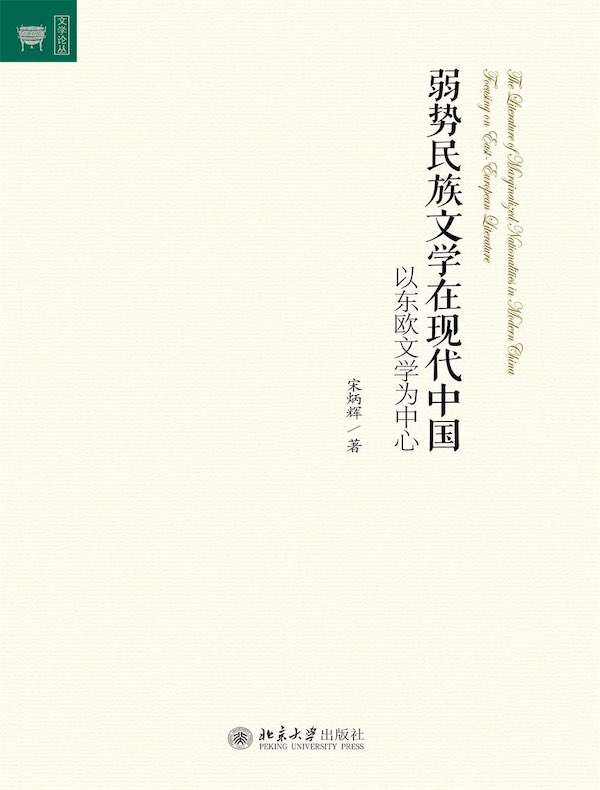 文学论丛
The Literature of Marginalized Nationalities in Modern China
Focusing on East-European Literature
弱势民族文学在现代中国
以东欧文学为中心
宋炳辉／著
北京大学出版社
PEKING UNIVERSITY PRESS